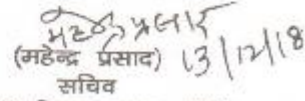 महेन्द्र प्रसाद
(महेन्द्र प्रसाद) 13/12/18
सचिव